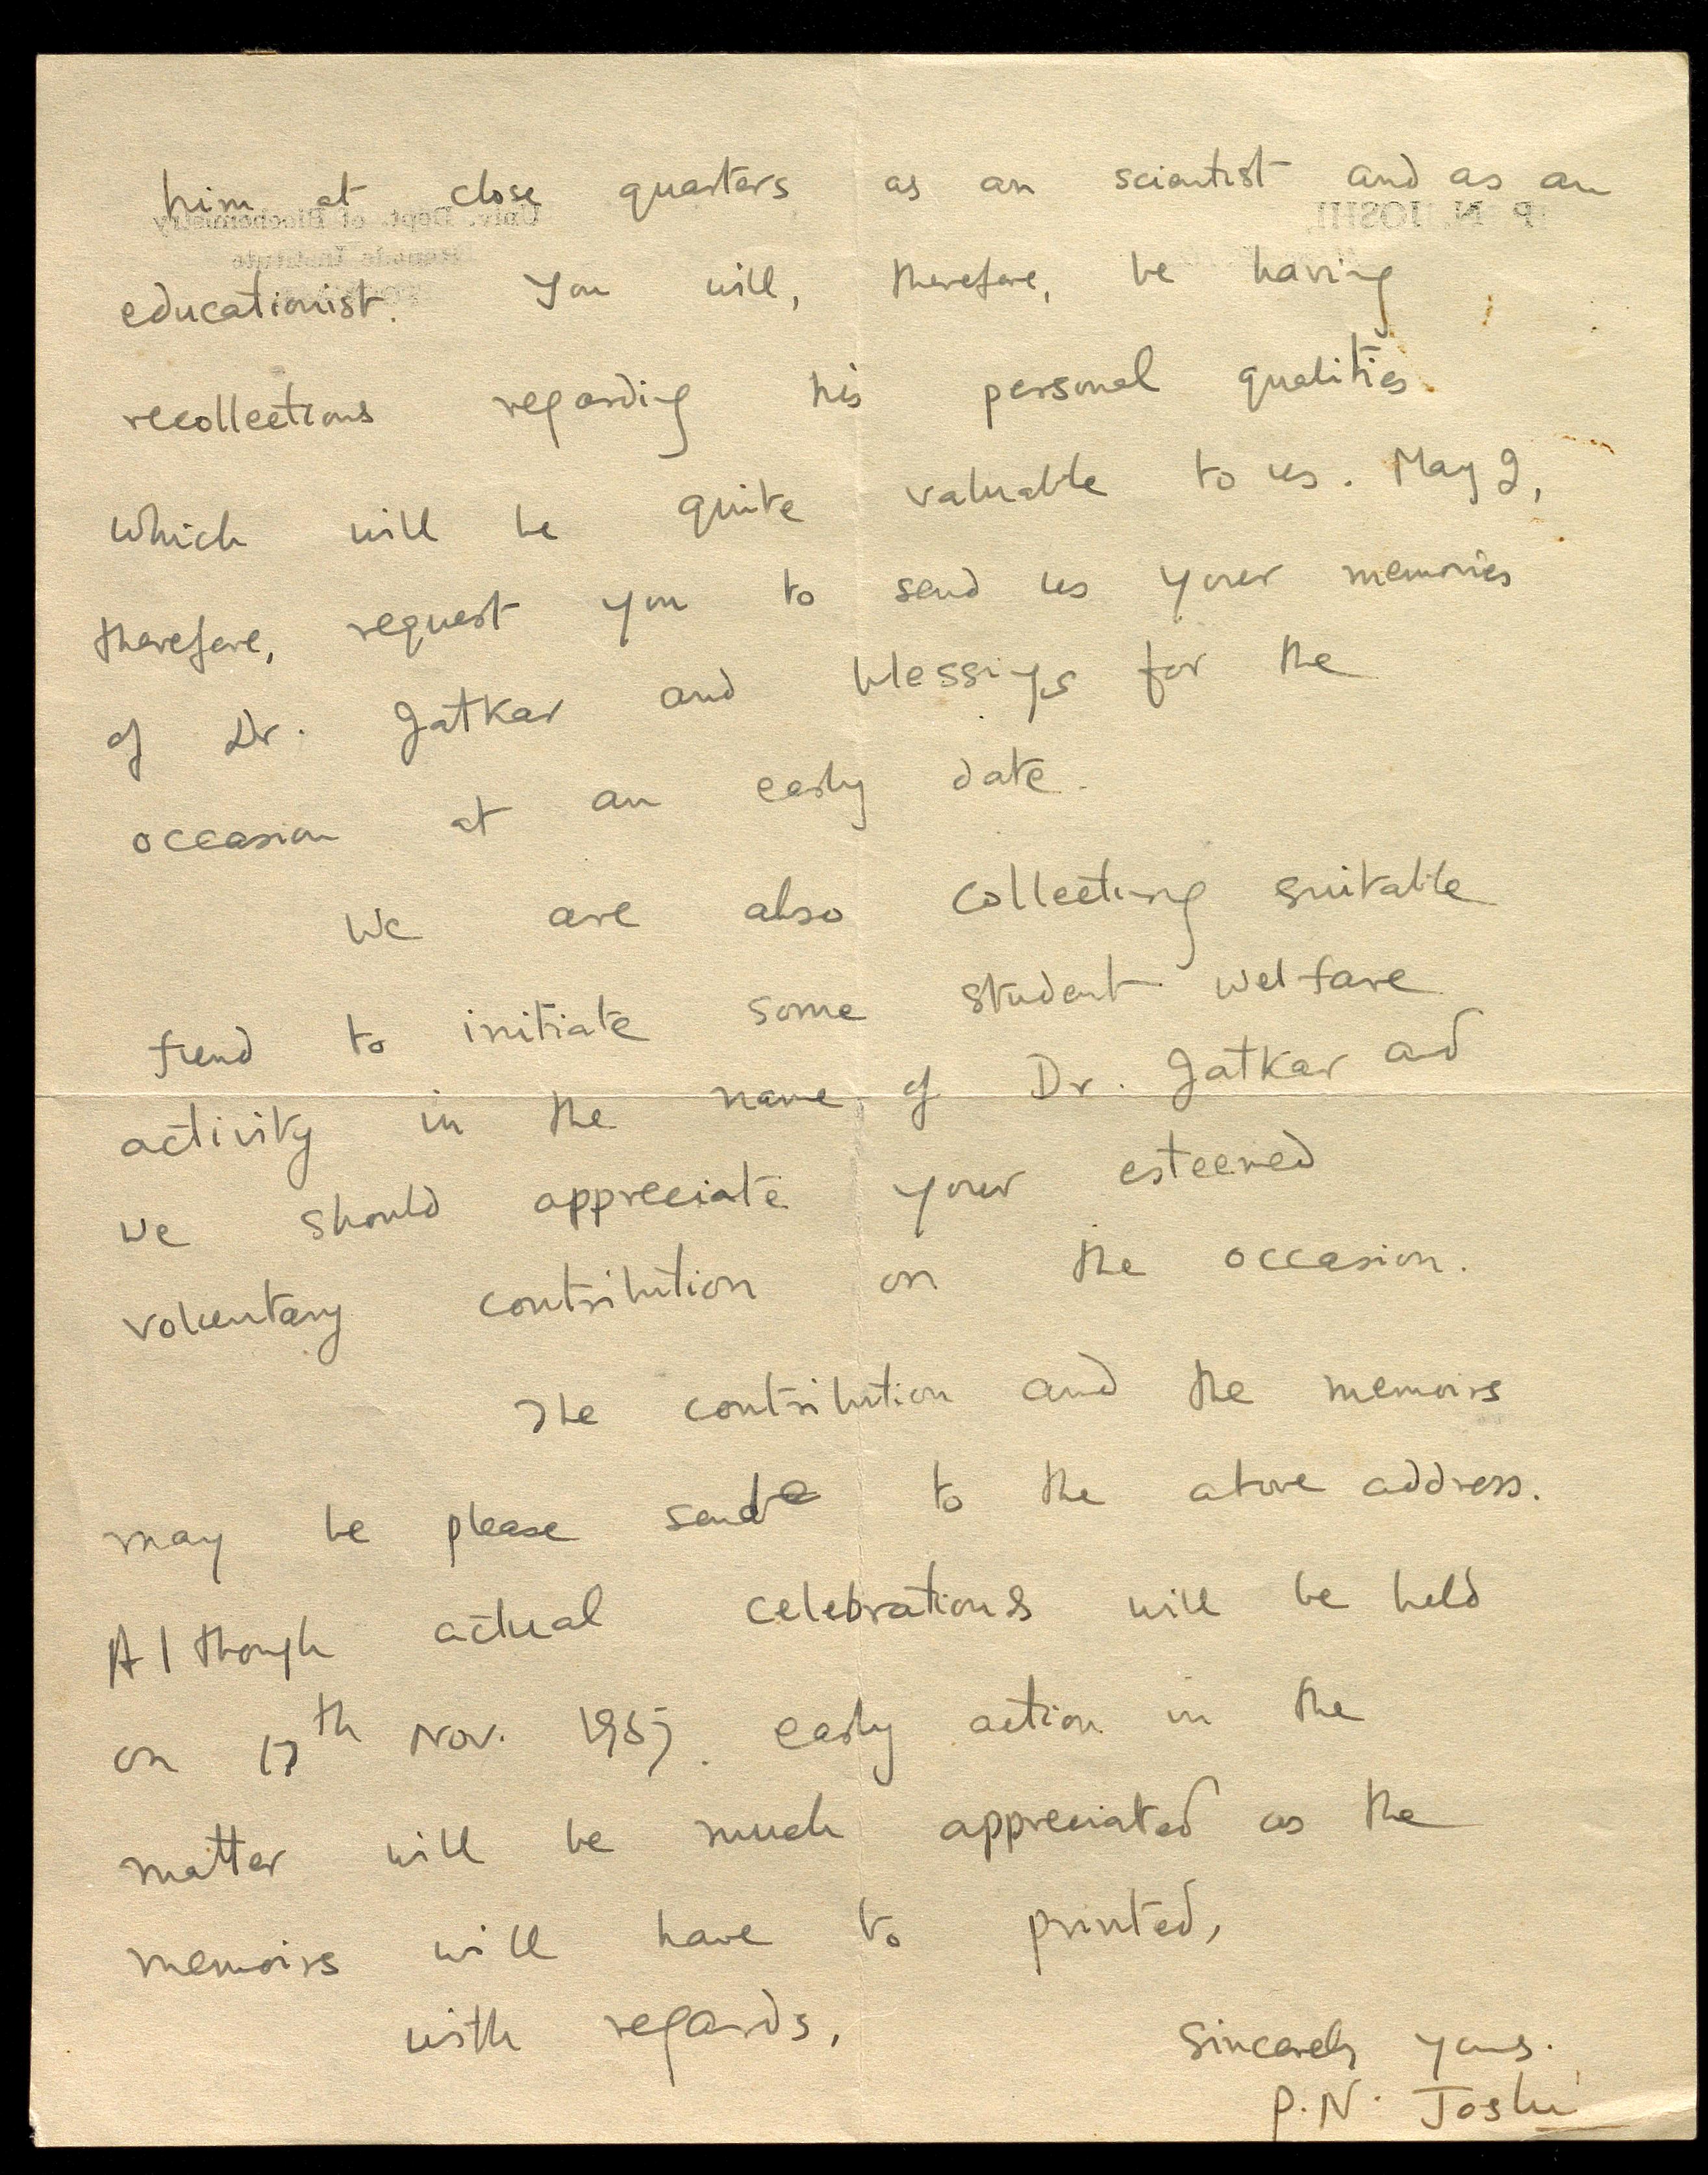 him at close quarters as an scientist and as an
P. N. JOSHI,
Univ. Dept. of Biochemistry
Ranade Institute
educationist. You will, therefore, be having
recollections regarding his personal qualities
which will be quite valuable to us. May I,
therefore, request you to send us your memories
of Dr. Jatkar and blessings for the
occasion at an early date.
We are also collecting suitable
fund to initiate some student welfare
activity in the name of Dr. Jatkar and
we should appreciate your esteemed
voluntary contribution on the occasion.
The contribution and the memoirs
may be please send to the above address.
Although actual celebrations will be held
on 17th Nov. 1965. early action in the
matter will be much appreciated as the
memoirs will have to printed.
with regards,
Sincerely yours.
P. N. Joshi